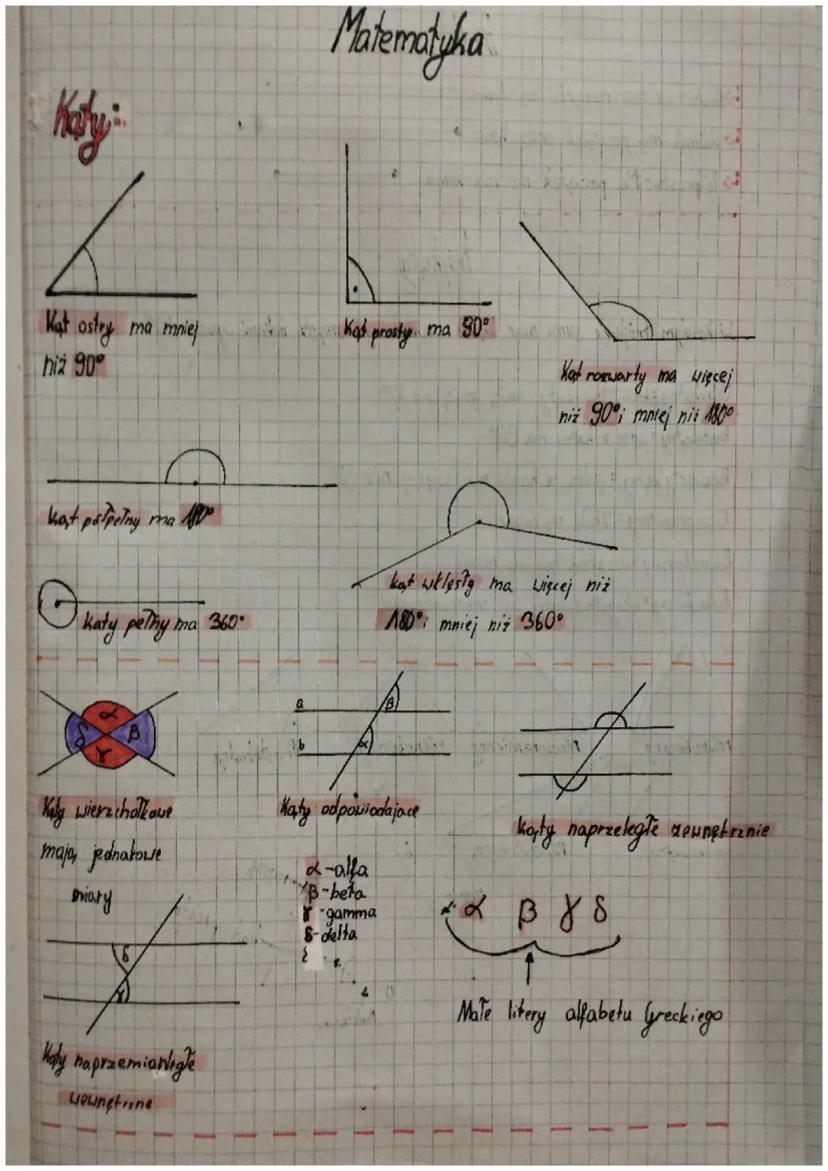 Matematyka
Kąty:
Kąt ostry ma mniej
niż 90°
Kąt prosty ma 90°
Kąt rozwarty ma więcej
niż 90° i mniej niż 180°
Kąt półpełny ma 180°
kąt wklęsły ma więcej niż
180° i mniej niż 360°
kąty pełny ma 360°
α
β
γ
δ
a
b
β
α
Kąty wierzchołkowe
mają jednakowe
miary
Kąty odpowiadające
kąty naprzeległe zewnętrznie
α-alfa
β-beta
γ-gamma
δ-delta
α β γ δ
Małe litery alfabetu Greckiego
δ
γ
Kąty naprzemianległe
wewnętrzne